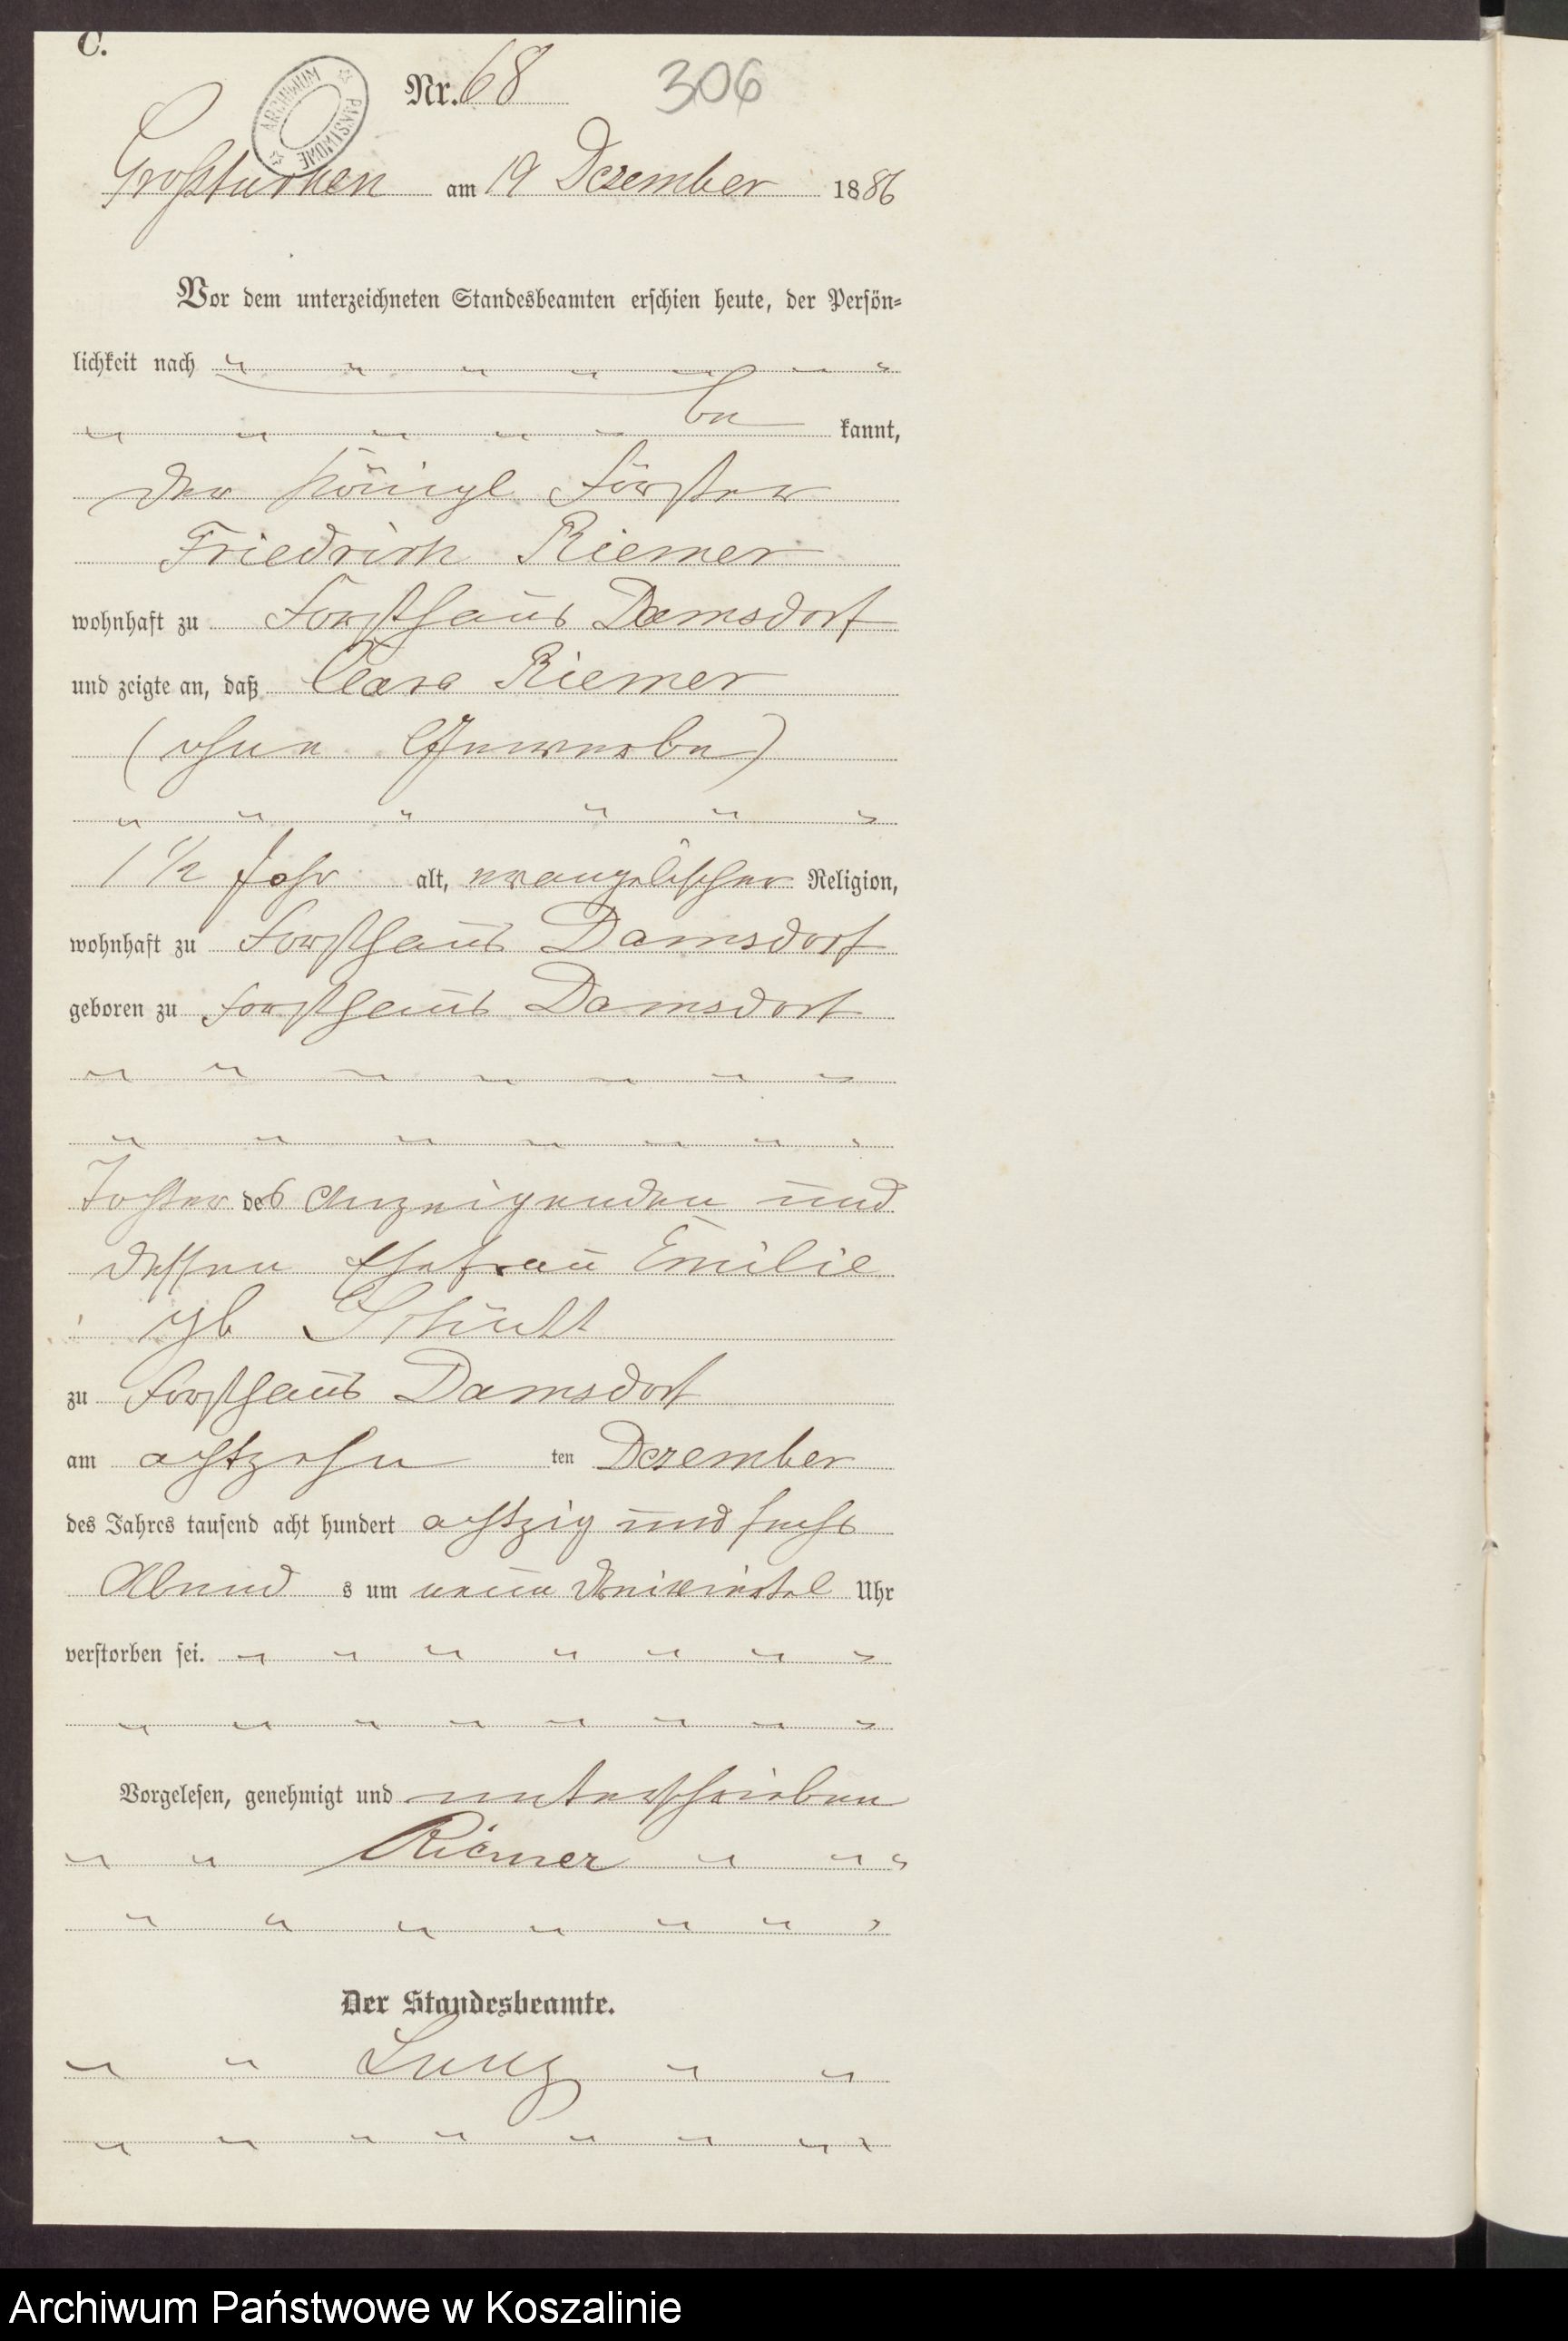 C.
ARCHIWUM PAŃSTWOWE
Nr. 68 306
Großtuchen am 19 Dezember 1886
Vor dem unterzeichneten Standesbeamten erschien heute, der Persön=
lichkeit nach
be kannt,
der Königl Förster
Friedrich Riemer
wohnhaft zu Forsthaus Damsdorf
und zeigte an, daß Clara Riemer
(ohne Gewerbe)
1 1/2 Jahr alt, evangelischer Religion,
wohnhaft zu Forsthaus Damsdorf
geboren zu Forsthaus Damsdorf
Tochter des Anzeigenden und
dessen Ehefrau Emilie
geb
zu Forsthaus Damsdorf
am achtzehn ten Dezember
des Jahres tausend acht hundert achtzig und sechs
Abend s um neun dreiviertel Uhr
verstorben sei.
Vorgelesen, genehmigt und unterschrieben
Riemer
Der Standesbeamte.
Archiwum Państwowe w Koszalinie